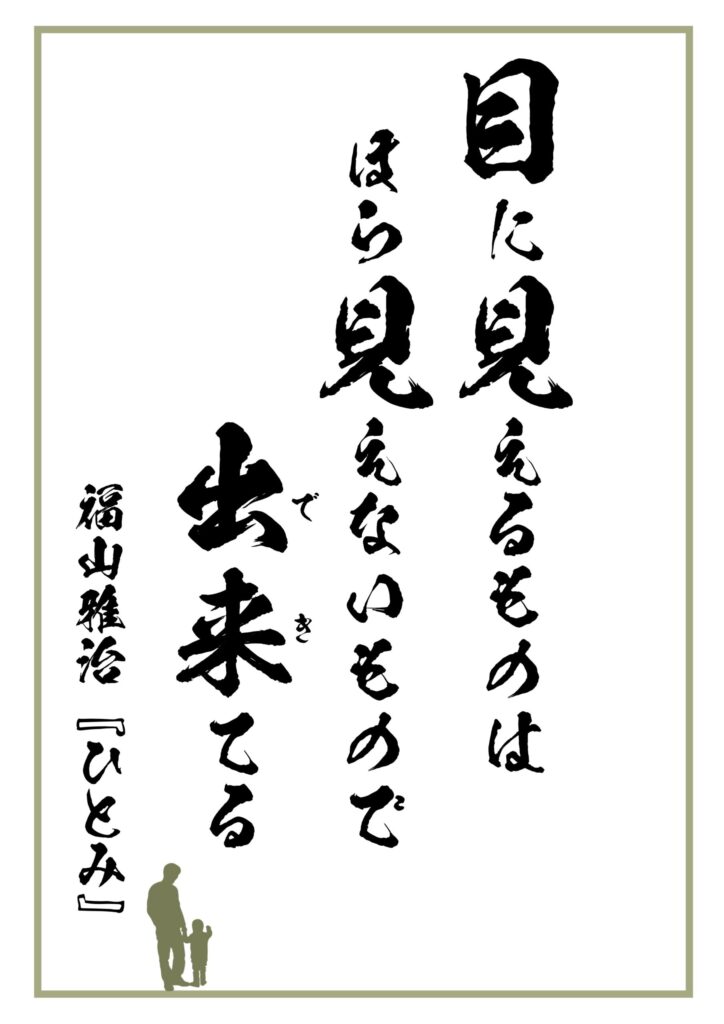 目に見えるものは
ほら見えないもので
出来てる
でき
福山雅治『ひとみ』